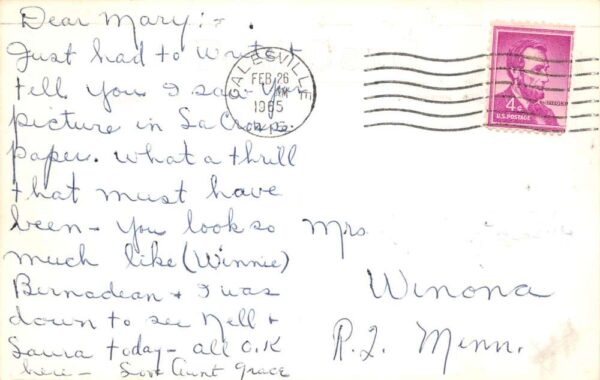 Dear Mary:-
Just had to write +
tell you I saw your
picture in La Crosse
paper. What a thrill
that must have
been - you look so
much like (Winnie)
Bernadean + I was
down to see Nell +
Laura today - all O.K
here - Love Aunt Grace
ALESVILLE
FEB 26
AM
1965
4¢
U.S. POSTAGE
Mrs
Winona
R.2. Minn.